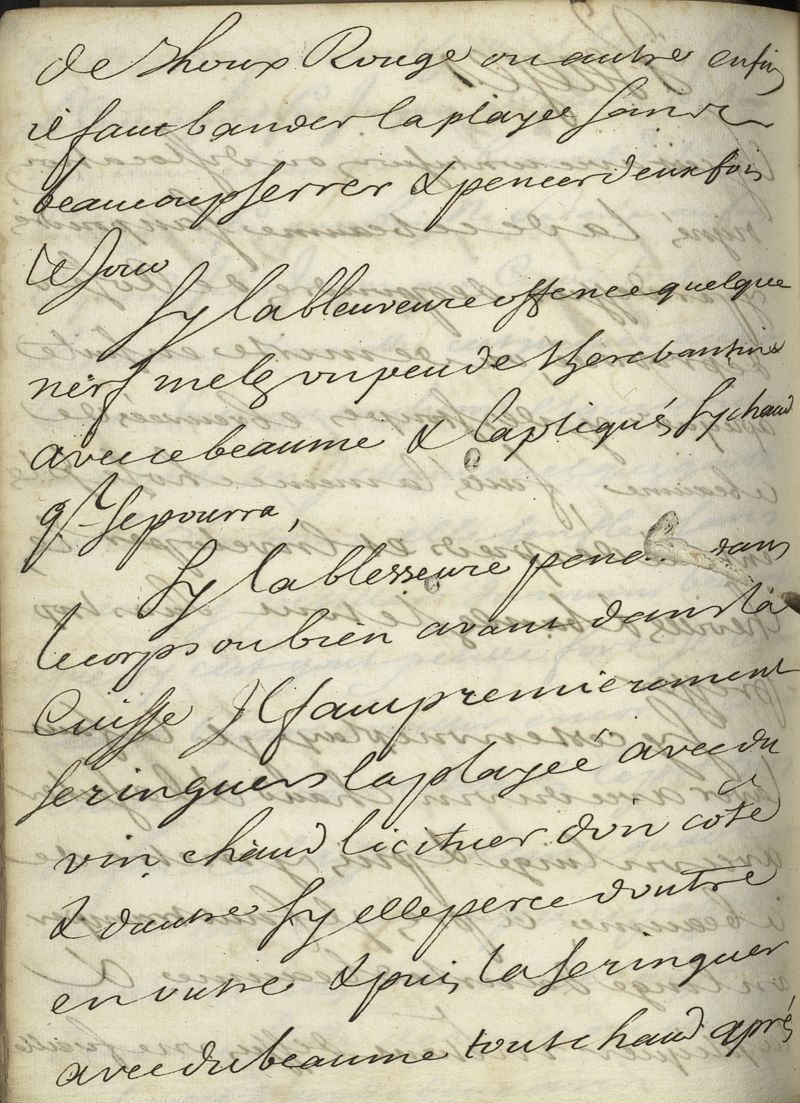 de Choux Rouge ou autre enfin
il faut bander la playe sans
beaucoup serrer & pencer deux fois
le Jour
Sy la bleuveure offence quelque
nerf melez un peu de therebantine
avec ce beaume & l'apliqués sy chaud
qt se pourra,
Sy la blesseure pene dans
le corps ou bien avant dans la
Cuisse Il faut premierement
seringuers la playeé avec du
vin chaud d'un coté
& d'autre sy elle perce d'outre
en outre & puis la seringuer
avec du beaume tout chaud aprés